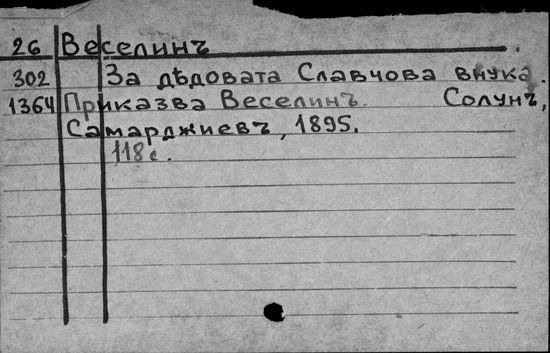 26 Веселинъ.
302 За дѣдовата Славчова внука.
1364 Приказва Веселинъ. Солунъ,
Самарджиевъ, 1895.
118 с.